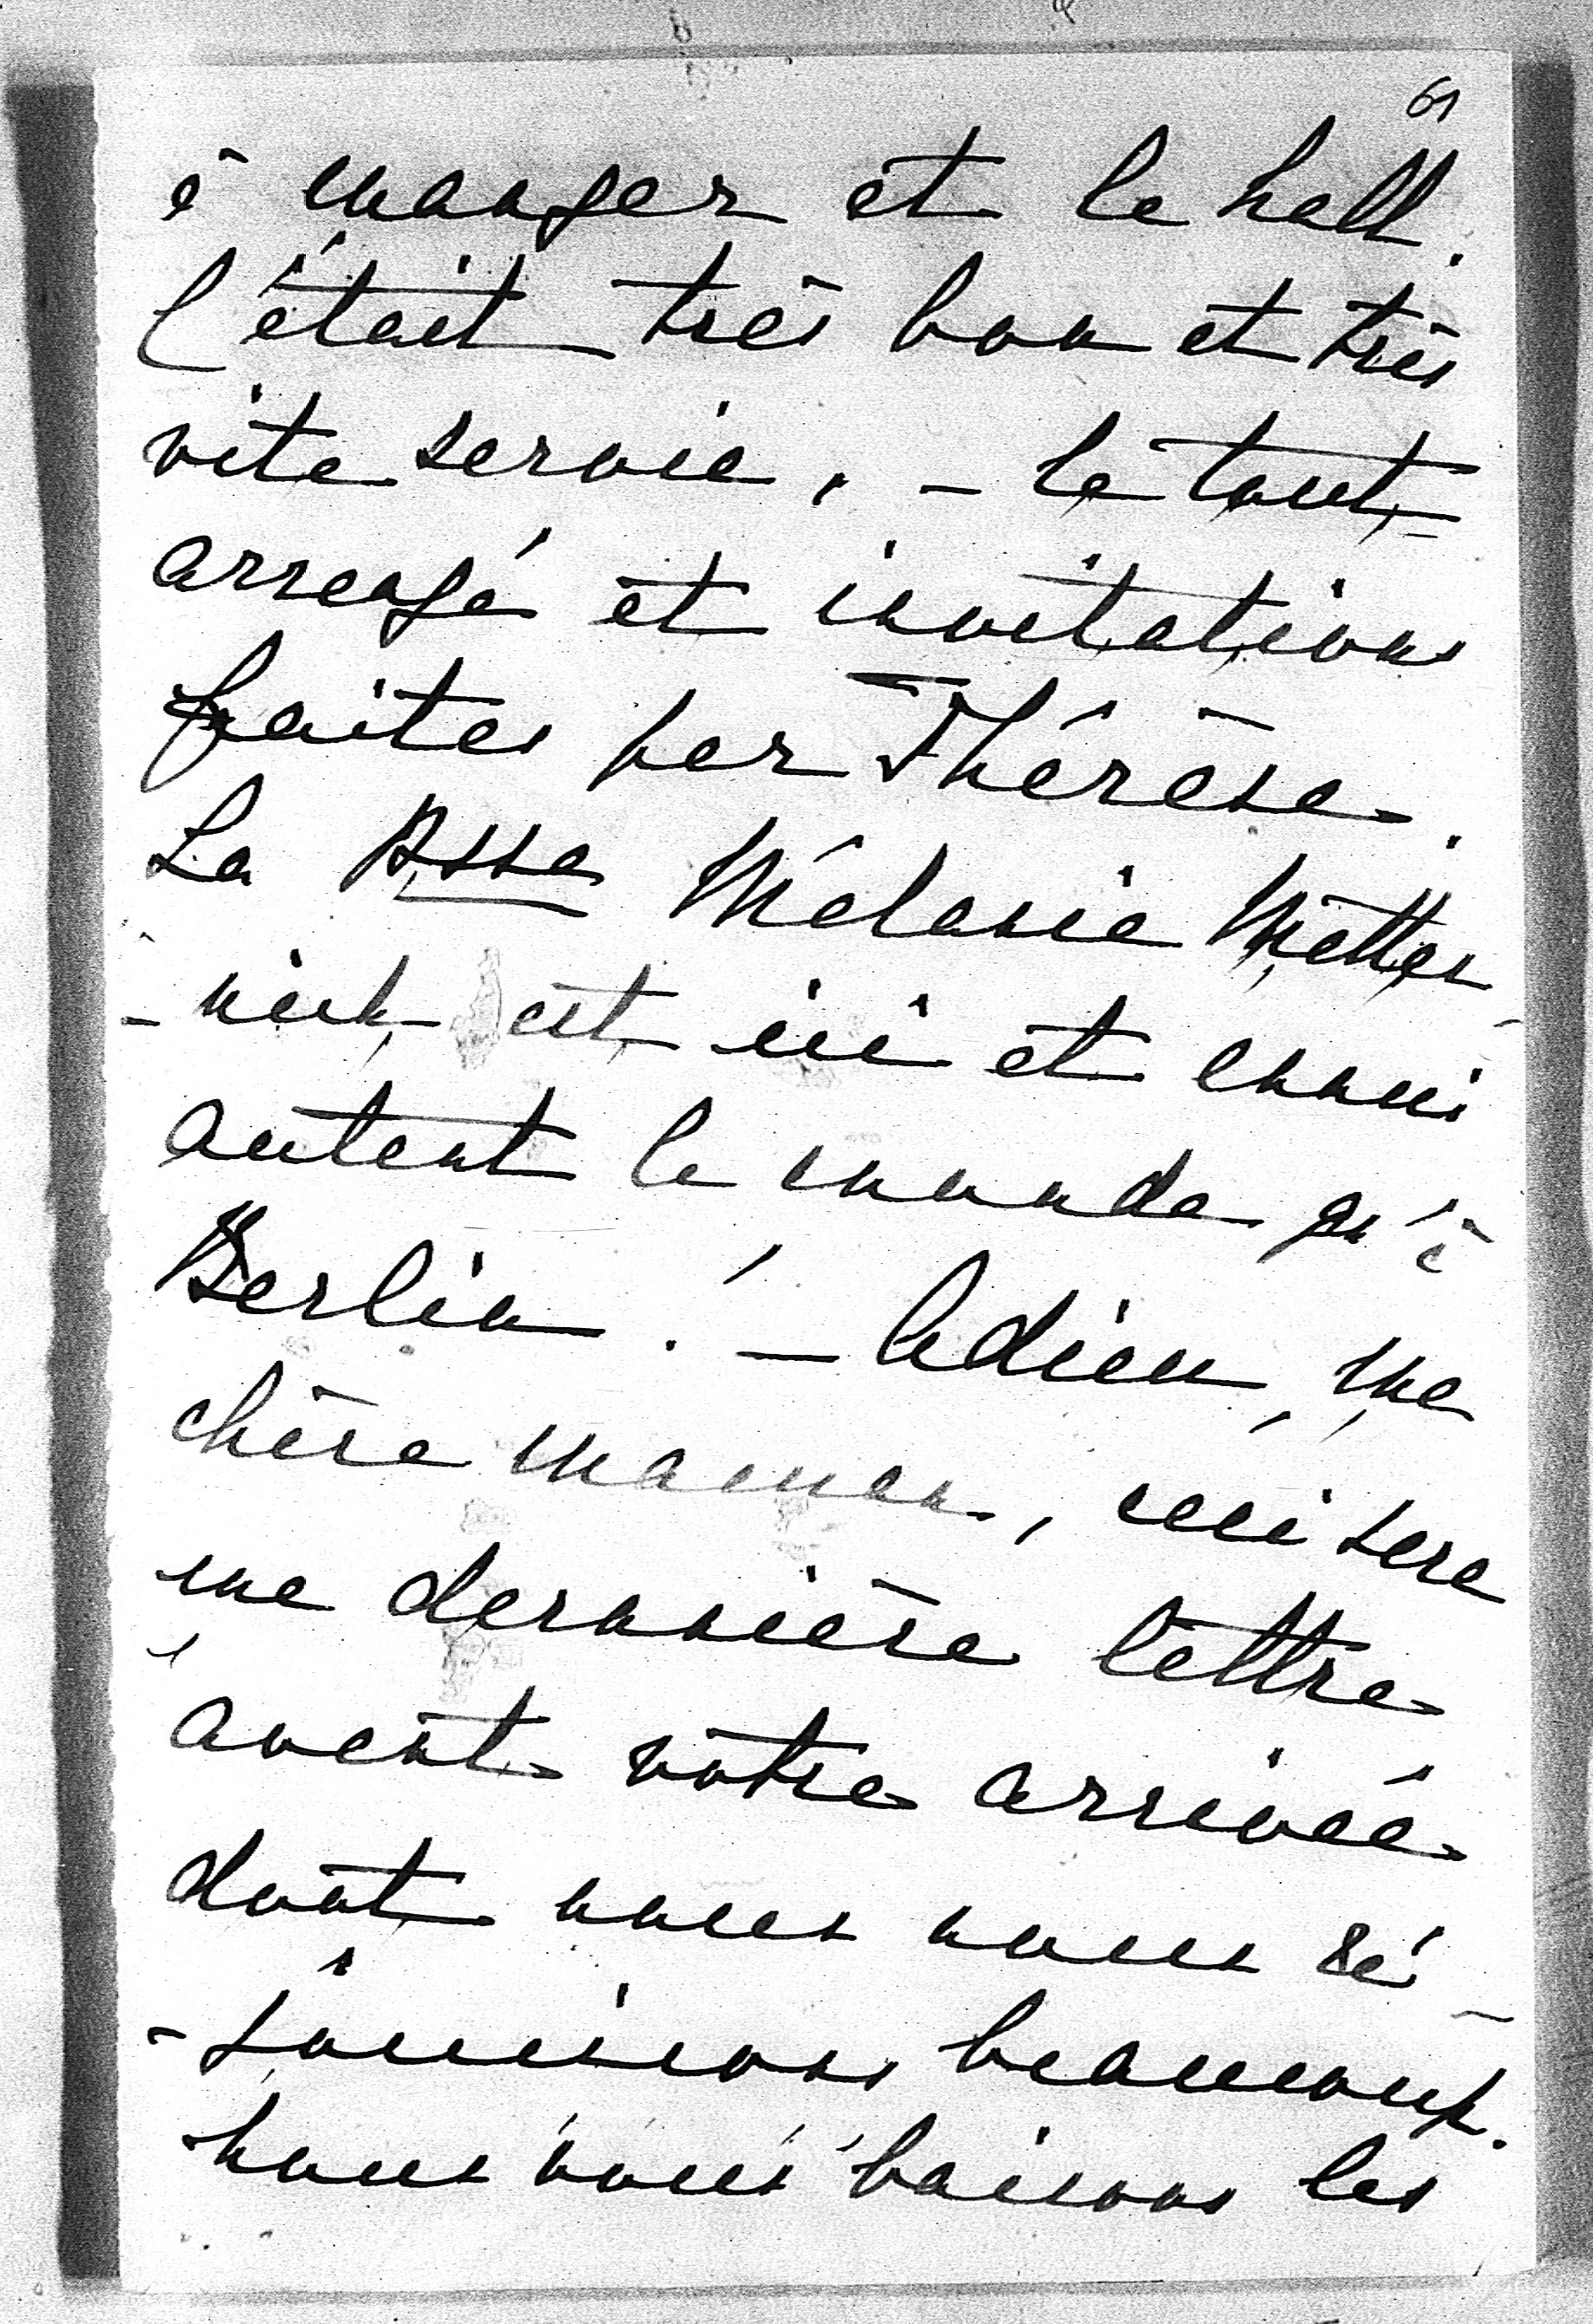 61
à manger et le hall.
C'était très bon et très
vite servie. – Le tout
arrangé et invitations
faites par Thérèse.
La Psse Mélanie Metter-
-nich est ici et ennui
autant le monde qu'à
Berlin. – Adieu, ma
chère maman, ceci sera
ma dernière lettre
avant votre arrivée
dont nous nous ré-
-jouissons beaucoup.
Nous vous baisons les